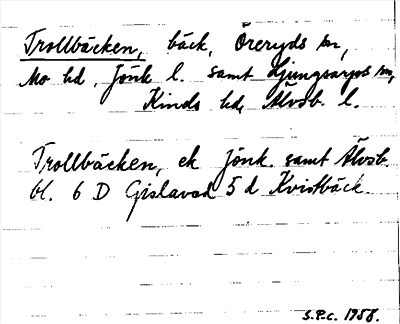 Trollbäcken, bäck, Öreryds sn,
Mo hd, Jönk l. samt Ljungsarps sn,
Kinds hd, Älvsb. l.
Trollbäcken, ek jönk. samt Älvsb.
bl. 6 D Gislaved 5 d Kvistbäck.
S.P.C. 1958.